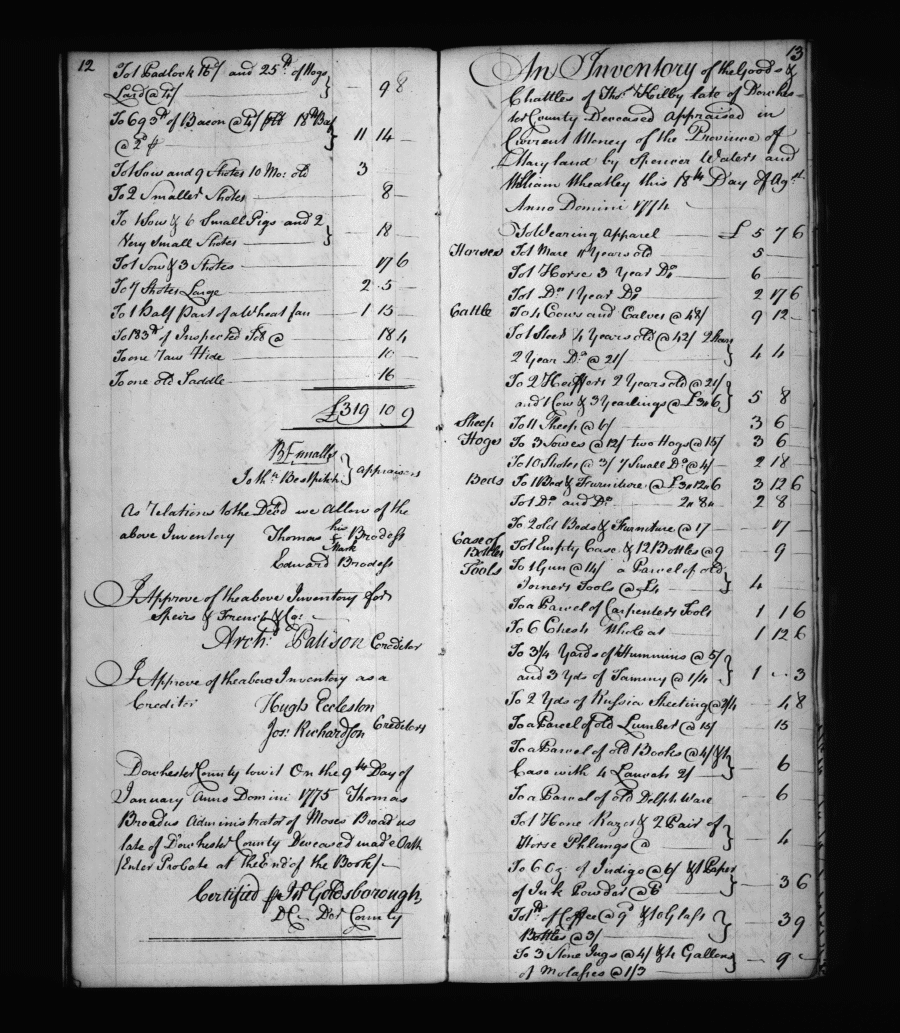 12
To 1 Padlock 16/ and 25lb of Hogs
Lard @ 4/ } — 9 8
To 695lb of Bacon @ 4/
@ 2d } 11 14 —
To 1 Sow and 9 Shotes 10 Mo: old 3
To 2 Smaller Shotes — 8 —
To 1 Sow & 6 Small Pigs and 2
Very Small Shotes } — 18 —
To 1 Sow & 3 Shotes — 17 6
To 7 Shotes Large — 2 5 —
To 1 Half Part of a Wheat fan — 1 15 —
To 183lb of Inspected Tob @ — 18 4
To one Raw Hide — 10 —
To one old Saddle — 16 —
£319 10 9
B Ennalls
Jothn Bestpitch } appraisers
As Relations to the Decd we Allow of the
above Inventory Thomas his Brodess
Mark
Edward Brodess
I Approve of the above Inventory for
Speirs & French & Co:
Archd Patison Creditor
I Approve of the above Inventory as a
Creditor Hugh Eccleston
Jos: Richardson Creditors
Dorchester County to wit On the 9th Day of
January Anno Domini 1775 Thomas
Broadus Administrator of Moses Broadus
late of Dorchester County Deceased made Oath
(Enter Probate at the End of the Book)
Certified p Jno Goldsborough,
DC Dor County
13
An Inventory of the Goods &
Chattles of Thos Kilby late of Dorches-
ter County Deceased Appraised in
Current Money of the Province of
Maryland by Spencer Waters and
William Wheatley this 18th Day of Agst
Anno Domini 1774
To Wearing Apparel — £ 5 7 6
Horses To 1 Mare 11 Years old 5 —
To 1 Horse 3 Year Do 6 —
To 1 Do 1 Year Do 2 17 6
Cattle To 4 Cows and Calves @ 48/ 9 12 —
To 1 Steer 4 Years old @ 42/
2 Year Do @ 21/ } 4 4
To 2 Heiffers 2 Years old @ 21/
and 1 Cow & 3 Yearlings @ £3..6 } 5 8
Sheep To 11 Sheep @ 6/ 3 6
Hogs To 3 Sowes @ 12/ two Hogs @ 15/ 3 6
To 10 Shotes @ 3/ 7 Small Do @ 4/ 2 18 —
Beds To 1 Bed & Furniture @ £3..12..6 3 12 6
To 1 Do and Do 2..8.. 2 8
To 2 old Beds & Furniture @ 17 — 17
Case of
Bottles To 1 Empty Case & 12 Bottles @ 9 — 9 —
Tools To 1 Gun @ 14/ a Parcel of old
Joiners Tools @ } 4
To a Parcel of Carpenters Tools 1 1 6
To 6 Chests Whole at 1 12 6
To 3/4 Yards of Hummins @ 5/
and 3 Yds of Tammy @ 1/4 } 1 — 3
To 2 Yds of Russia Sheeting @ 2/4 4 8
To a Parcel of old Lumber @ 15/ 15
To a Parcel of old Books @ 4/ & 1
Case with 4 Lancets 2/ } — 6 —
To a Parcel of old Delph Ware — 6
To 1 Hone Razor & 2 Pair of
Horse Phlungs @ } — 4
To 6 Oz of Indigo @ 6/ & 1 Paper
of Ink Powder @ 6 } — 3 6
To 1lb of Coffee @ 9d & 10 Glass
Bottles @ 3/ } — 3 9
To 3 Stone Jugs @ 4/ & 4 Gallons
of Molasses @ 1/3 } — 9 —